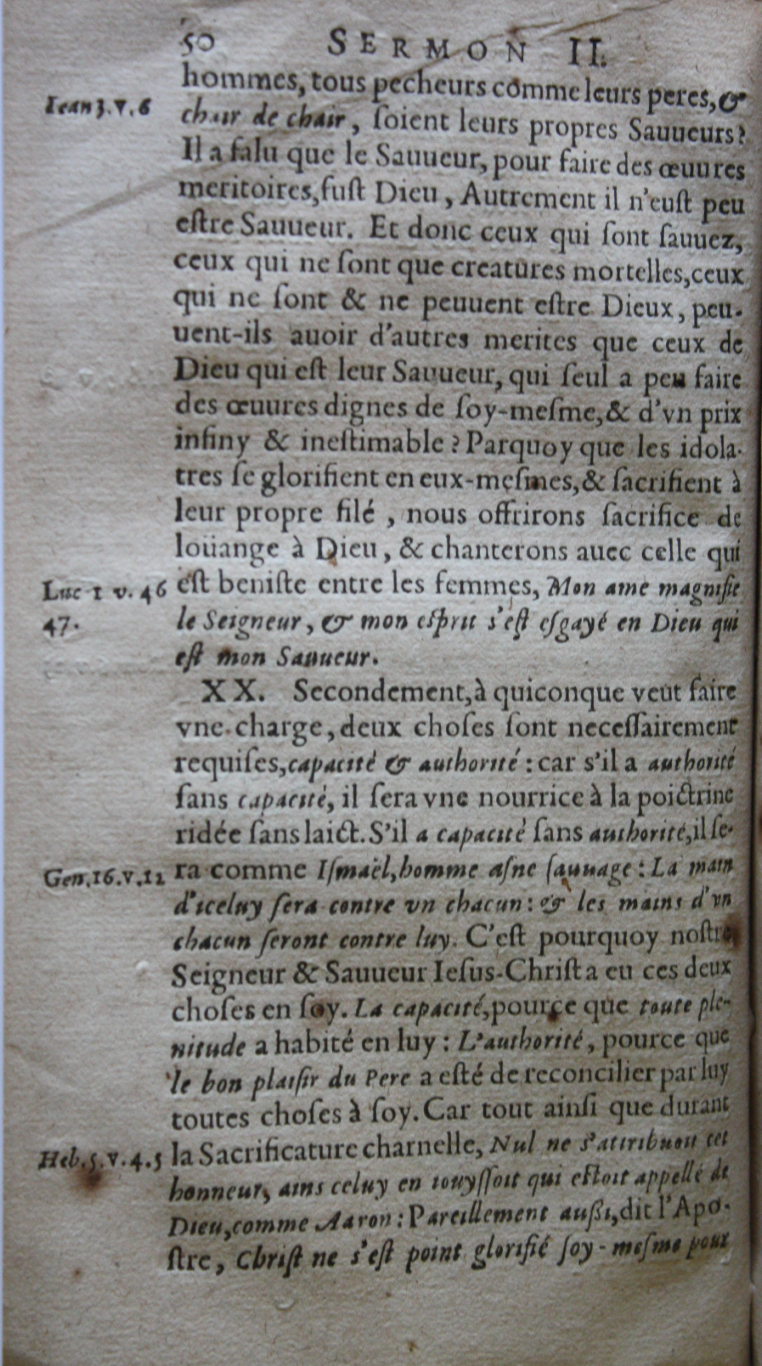 50 SERMON II.
hommes, tous pecheurs comme leurs peres, &
Iean 3. v. 6
chair de chair, ſoient leurs propres Sauueurs?
Il a falu que le Sauueur, pour faire des œuures
meritoires, fuſt Dieu, Autrement il n'euſt peu
eſtre Sauueur. Et donc ceux qui ſont ſauuez,
ceux qui ne ſont que creatures mortelles, ceux
qui ne ſont & ne peuuent eſtre Dieux, peu-
uent-ils auoir d'autres merites que ceux de
Dieu qui eſt leur Sauueur, qui ſeul a peu faire
des œuures dignes de ſoy-meſme, & d'vn prix
infiny & ineſtimable? Parquoy que les idola-
tres ſe glorifient en eux-meſmes, & ſacrifient à
leur propre filé, nous offrirons ſacrifice de
loüange à Dieu, & chanterons auec celle qui
Luc 1 v. 46
47.
eſt beniſte entre les femmes, Mon ame magnifie
le Seigneur, & mon eſprit s'eſt eſgayé en Dieu qui
eſt mon Sauueur.
XX. Secondement, à quiconque veut faire
vne charge, deux choſes ſont neceſſairement
requiſes, capacité & authorité: car s'il a authorité
ſans capacité, il ſera vne nourrice à la poictrine
ridée ſans laict. S'il a capacité ſans authorité, il ſe-
Gen. 16. v. 12
ra comme Iſmaël, homme aſne ſauuage: La main
d'iceluy ſera contre vn chacun: & les mains d'vn
chacun ſeront contre luy. C'eſt pourquoy noſtre
Seigneur & Sauueur Ieſus-Chriſt a eu ces deux
choſes en ſoy. La capacité, pource que toute ple-
nitude a habité en luy: L'authorité, pource que
le bon plaiſir du Pere a eſté de reconcilier par luy
toutes choſes à ſoy. Car tout ainſi que durant
Heb. 5. v. 4. 5
la Sacrificature charnelle, Nul ne s'attribuoit cet
honneur, ains celuy en iouyſſoit qui eſtoit appellé de
Dieu, comme Aaron: Pareillement auſſi, dit l'Apo-
ſtre, Chriſt ne s'eſt point glorifié ſoy-meſme pour